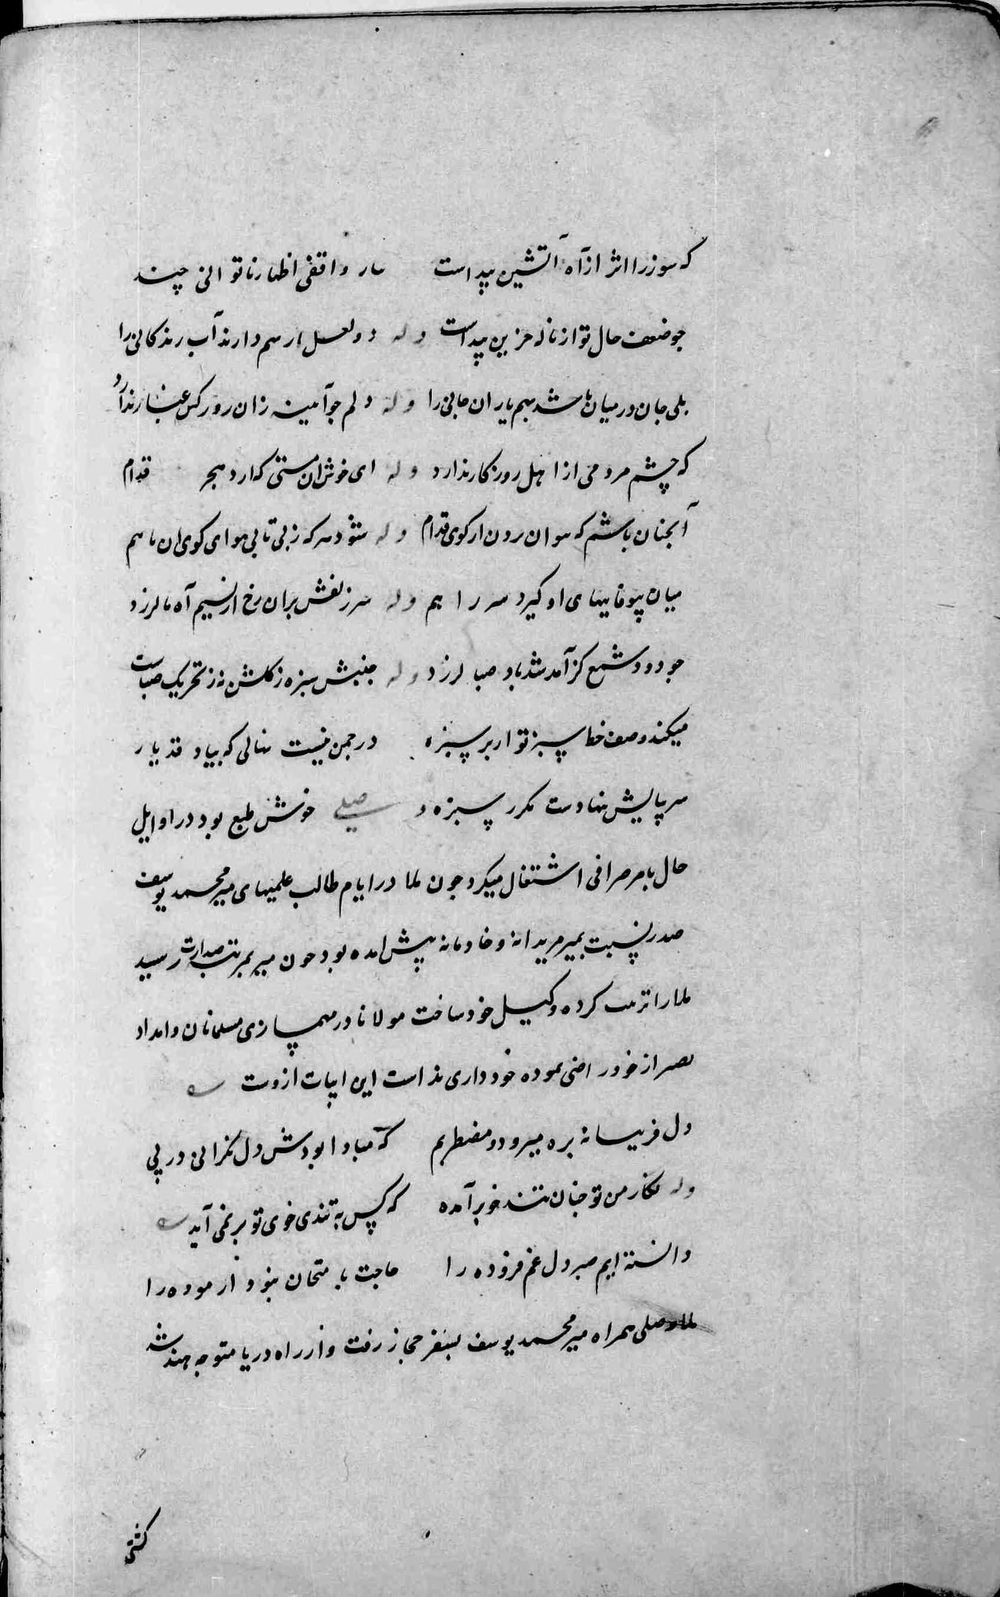 که سوز را اثر از آه آتشین پیداست واقفی اظهار ناتوانی چند
چو ضعف حال تو از ناله حزین پیداست وله دو لعل ار هم دارند آب زندگانی را
بلی جان در میان باشد بهم یاران جانی را وله دلم چو آینه زان رو ز کس غبار ندارد
که چشم مردمی از اهل روزگار ندارد وله ای خوش آن مستی که آرد قدم
آنچنان باشم که نتوان بردن از کوی قدم وله شود سرکه زبی تابی هوای کوی آن ماهم
میان بیوفاییهای او گیرد سر راهم وله سر زلفش بران رخ از نسیم آه ما لرزد
چو دود شمع کز آمد شد باد صبا لرزد وله جنبش سبزه ز گلشن نه ز تحریک صباست
میکند وصف خط سبز تو از بر سبزه در چمن نیست نهالی که بیاد قد یار
سر بپایش ننهادست مکرر سبزه وصلی خوش طبع بود در اوایل
حال بامر صرافی اشتغال میکرد چون ملا در ایام طالب علمیهای میر محمد یوسف
صدر نسبت بمیر مریدانه و خادمانه پیش آمده بود چون میر بمرتبه صدارت رسید
ملا را تربیت کرده وکیل خود ساخت مولانا در مهمسازی مسلمانان و امداد
از خود راضی نموده خودداری نداست این ابیات ازوست
دل فریبانه بره میرود و مضطربم که مبادا بودش دل نگرانی در پی
وله نگار من تو چنان تند خو برآمده که کس به تندی خوی تو بر نمی آید
دانسته ایم صبر دل غم فزوده را حاجت بامتحان نبود آزموده را
ملا وصلی همراه میر محمد یوسف بسفر حجاز رفت و از راه دریا متوجه هند شد
کشتی